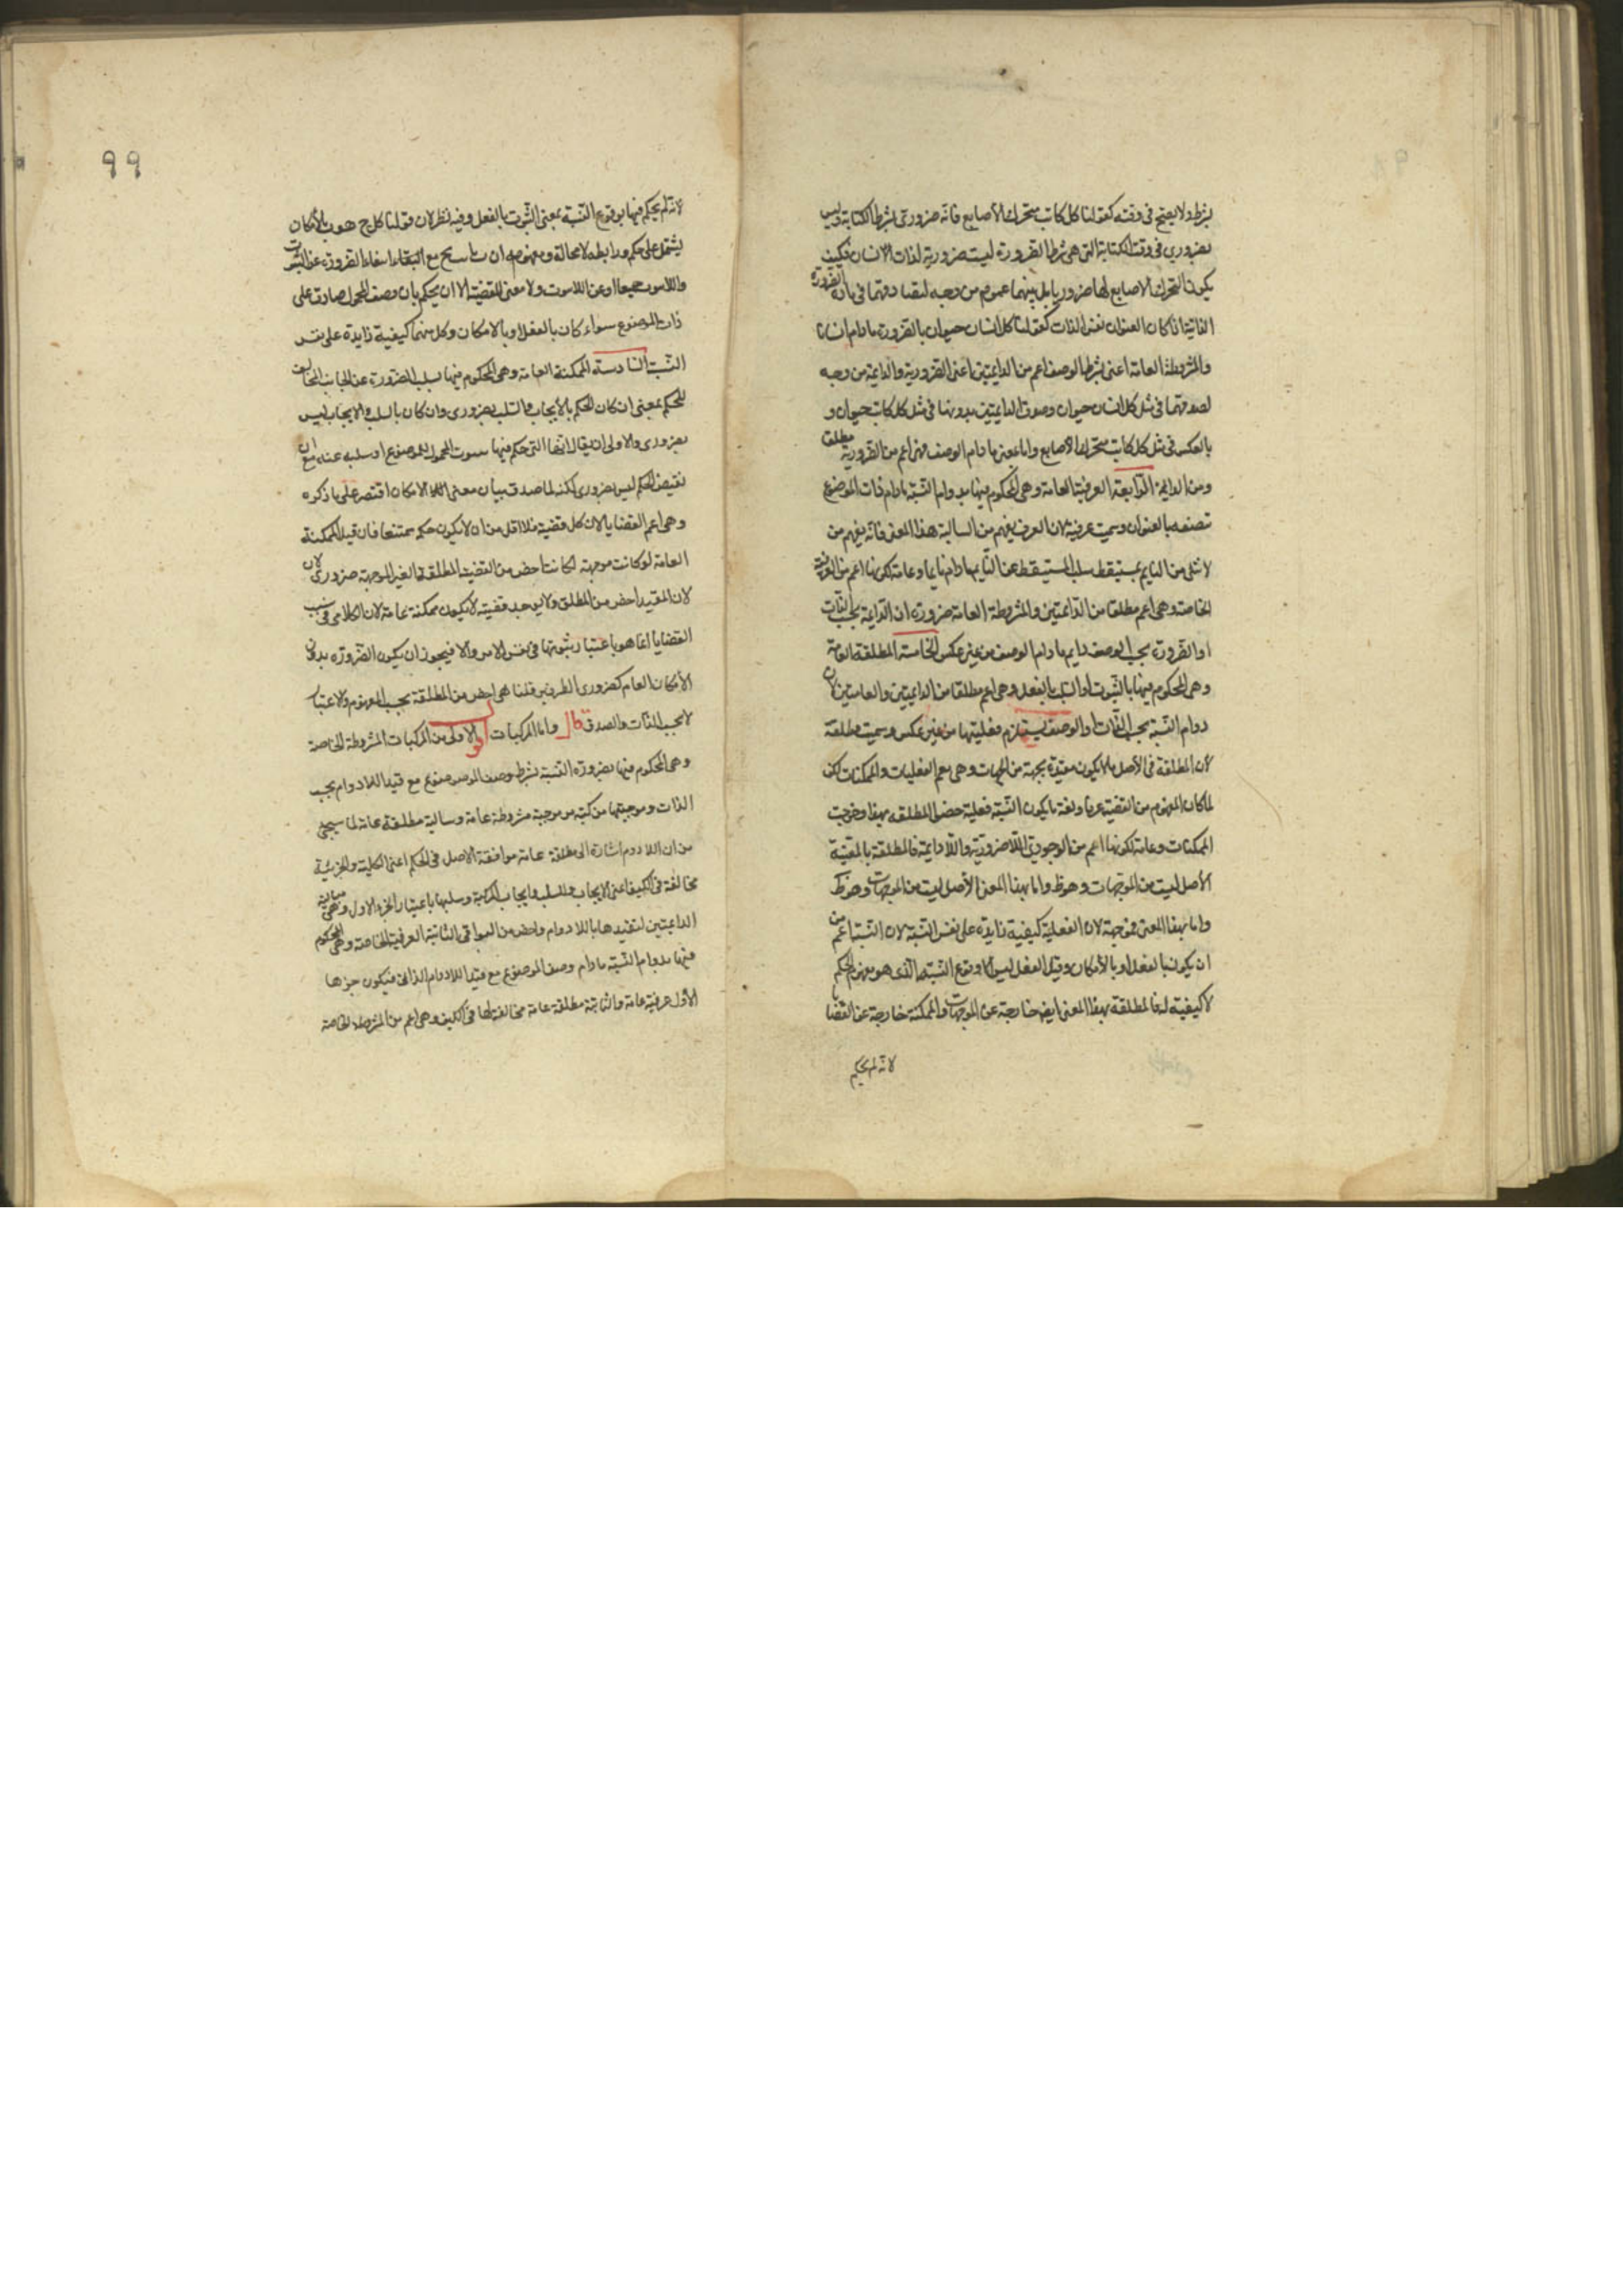 بشرط ولا يصح فى وقته كقولنا كل كاتب متحرك الأصابع فانه ضرورى بشرط الكتابة وليس
بضرورى فى وقت الكتابة التى هى شرط الضرورة ليست ضرورية لذات الانسان فكيف
يكون التحرك الاصابع لها ضروريا بل بينهما عموم من وجه لتصادقهما فى مادة الضرورة
الذاتية اذا كان العنوان نفس الذات كقولنا كل انسان حيوان بالضرورة مادام انسانا
والمشروطة العامة اعنى بشرط الوصف اعم من الدايمتين اعنى الضرورية والدايمة من وجه
لصدقهما فى مثل كل انسان حيوان وصدق الدايمتين بدونها فى مثل كل كاتب حيوان و
بالعكس فى مثل كل كاتب متحرك الاصابع واما بمعنى مادام الوصف فهى اعم من الضرورية مطلقا
ومن الدايمة الرابعة العرفية العامة وهى المحكوم فيها بدوام النسبة مادام ذات الموضوع
تصفه بالعنوان وسميت عرفية لان العرف يفهم من السالبة هذا المعنى فانه يفهم من
لا شئ من النايم بمستيقظ سلب المستيقظ عن النايم مادام نايما وعامة لكونها اعم من العرفية
الخاصة وهى اعم مطلقا من الدائمتين والمشروطة العامة ضرورة ان الدايمة بحسب الذات
او الضرورة بحسب الوصف دايم مادام الوصف من غير عكس الخامسة المطلقة العامة
وهى المحكوم فيها بالثبوت او السلب بالفعل وهى اعم مطلقا من الدايمتين والعامتين لان
دوام النسبة بحسب الذات او الوصف يستلزم فعليتها من غير عكس وسميت مطلقة
لان المطلقة فى الأصل ما لا يكون مقيدة بجهة من الجهات وهى يعم الفعليات والممكنات لكن
لما كان المفهوم من القضية عرفا ولغة ما يكون النسبة فعلية خص المطلقة بهذا وخرجت
الممكنات وعامة لكونها اعم من الوجودية اللاضرورية واللادايمة فالمطلقة بالمعنى
الأصل ليست من الموجهات وهو ظ واما بهذا المعنى الأصل ليست من الموجهات وهو ظ
واما بهذا المعنى فموجهة لان الفعلية كيفية زايدة على نفس النسبة لان النسبة اعم من
ان يكون بالفعل او بالأمكان وقيل الفعل ليس الا وقوع النسبة الذى هو مفهوم الحكم
لا كيفية له فالمطلقة بهذا المعنى ايض خارجة عن الموجهات والممكنة خارجة عن القضايا
لانه لم يحكم
٩٩
لانه لم يحكم فيها بوقوع النسبة بمعنى الثبوت بالفعل وفيه نظر لان قولنا كل ج هو ب بالأمكان
يشتمل على حكم ورابطة لا محالة ومفهومه ان مع انتفاء الضرورة عن الثبوت
واللاثبوت جميعا او عن اللاثبوت ولا معنى للقضية الا ان يحكم بان وصف المحمول صادق على
ذات الموضوع سواء كان بالفعل او بالامكان وكل منهما كيفية زايدة على نفس
النسبة السادسة الممكنة العامة وهى المحكوم فيها بسلب الضرورة عن الجانب المخالف
للحكم بمعنى ان كان الحكم بالأيجاب فالسلب بضرورى وان كان بالسلب فالايجاب ليس
بضرورى والاولى ان يقال انها التى حكم فيها بثبوت المحمول للموضوع او سلبه عنه مع ان
نقيض الحكم ليس بضرورى لكنه لما صدق بيان معنى الامكان اقتصر على ما ذكره
وهى اعم القضايا لان كل قضية فلا اقل من ان لا يكون حكم ممتنعا فان قيل الممكنة
العامة لو كانت موجهة لكانت اخص من القضية المطلقة الغير الموجهة ضرورى لان
لان المقيد اخص من المطلق ولا يوجد قضية لا يكون ممكنة عامة لان الكلام فى نسب
القضايا انما هو باعتبار ثبوتها فى نفس الامر والا فيجوز ان يكون الضرورة بدون
الأمكان العام كضرورى الطرفين قلنا هى اخص من المطلقة بحسب المفهوم والاعتبار
لا بحسب الذات والصدق قال واما المركبات اقول الاولى من المركبات المشروطة الخاصة
وهى المحكوم فيها بضرورة النسبة بشرط وصف الموضوع مع قيد اللادوام بحسب
الذات وموجبتها مركبة من موجبة مشروطة عامة وسالبة مطلقة عامة لما سيجئ
من ان اللادوام اشارة الى مطلقة عامة موافقة الاصل فى الحكم اعنى الكلية والجزئية
مخالفة فى الكيف اعنى الايجاب والسلب وايجاب المركبة وسلبها باعتبار الجزء الاول وهى مباينة
الدائمتين لتقيدها باللادوام واخص من البواقى الثانية العرفية الخاصة وهى المحكوم
فيها بدوام النسبة مادام وصف الموضوع مع قيد اللادوام الذاتى فيكون جزءها
الأول عرفية عامة والثانية مطلقة عامة مخالفة لها فى الكيف وهى اعم من المشروطة الخاصة